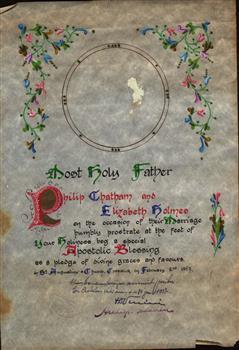 Most Holy Father
Philip Chatham and
Elizabeth Holmes
on the occasion of their Marriage
humbly prostrate at the feet of
Your Holiness beg a special
Apostolic Blessing
as a pledge of divine graces and favours.
St. Augustine's Church, February 2nd 1957.